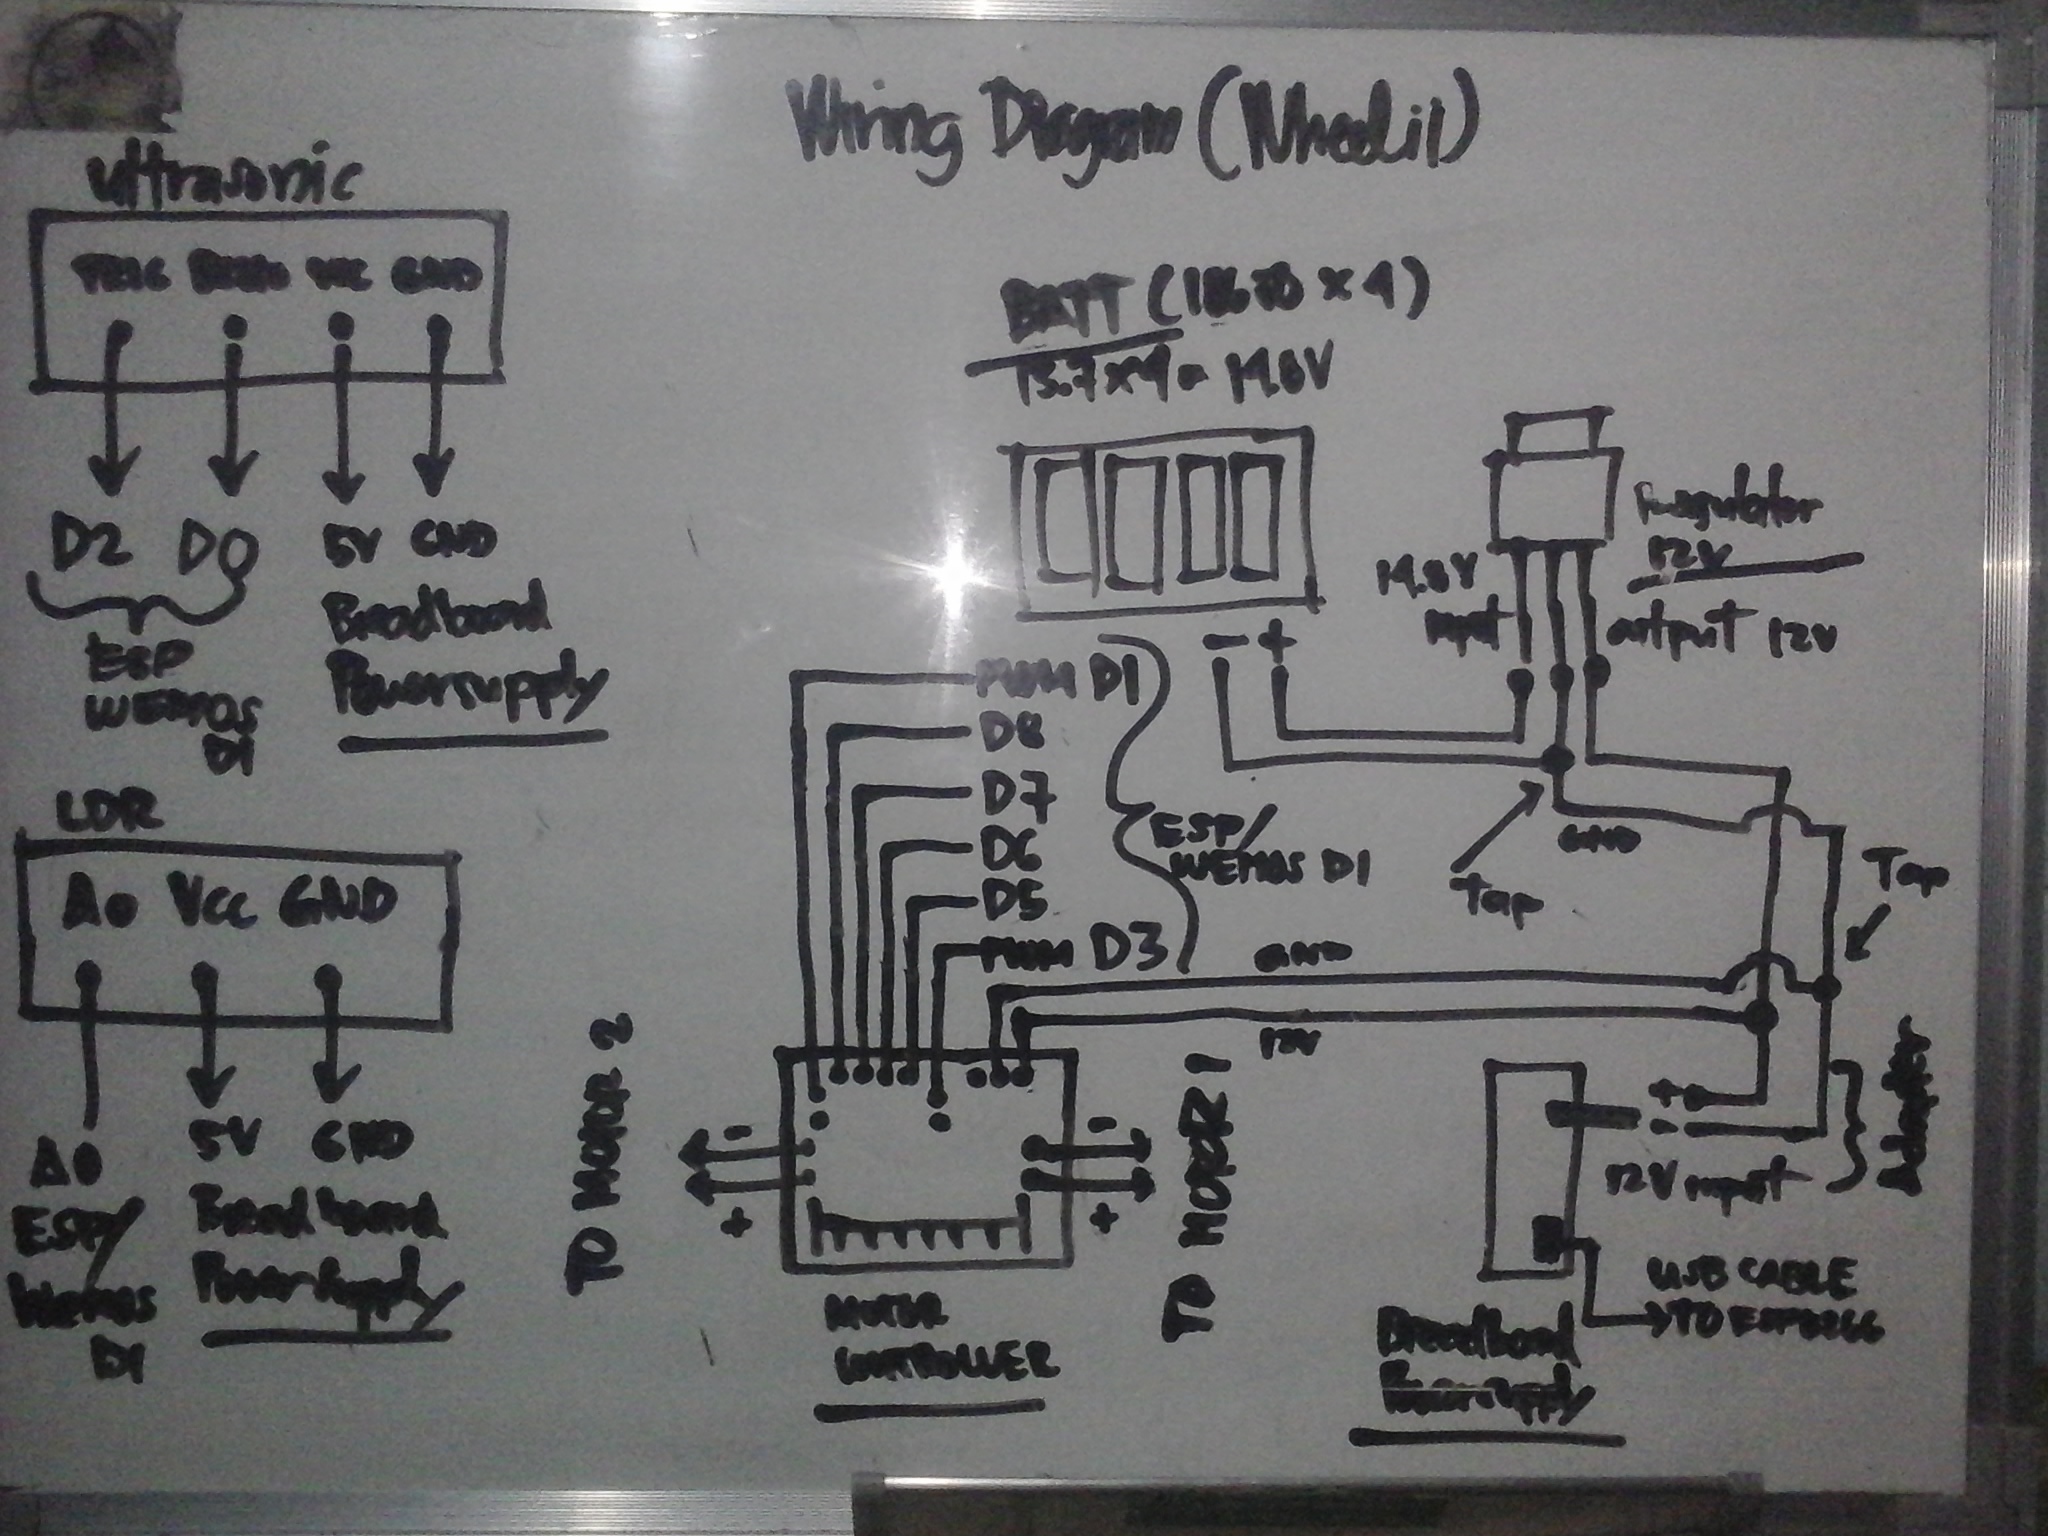 Wiring Diagram (Wheelil)
ultrasonic
TRIG ECHO VCC GND
D2 D0 5V GND
ESP
WEMOS
D1
Breadboard
Powersupply
LDR
A0 Vcc GND
A0 5V GND
ESP/
WEMOS
D1
Breadboard
Powersupply
BATT (18650 x 4)
3.7 x 4 = 14.8V
- +
Regulator
12V
14.8V
input
output 12V
Tap
GND
Tap
PWM D1
D8
D7
D6
D5
PWM D3
ESP/
WEMOS D1
GND
12V
TO MOTOR 2
-
+
-
+
TO MOTOR 1
MOTOR
CONTROLLER
+
-
12V input
Adapter
USB CABLE
TO ESP8266
Breadboard
Powersupply